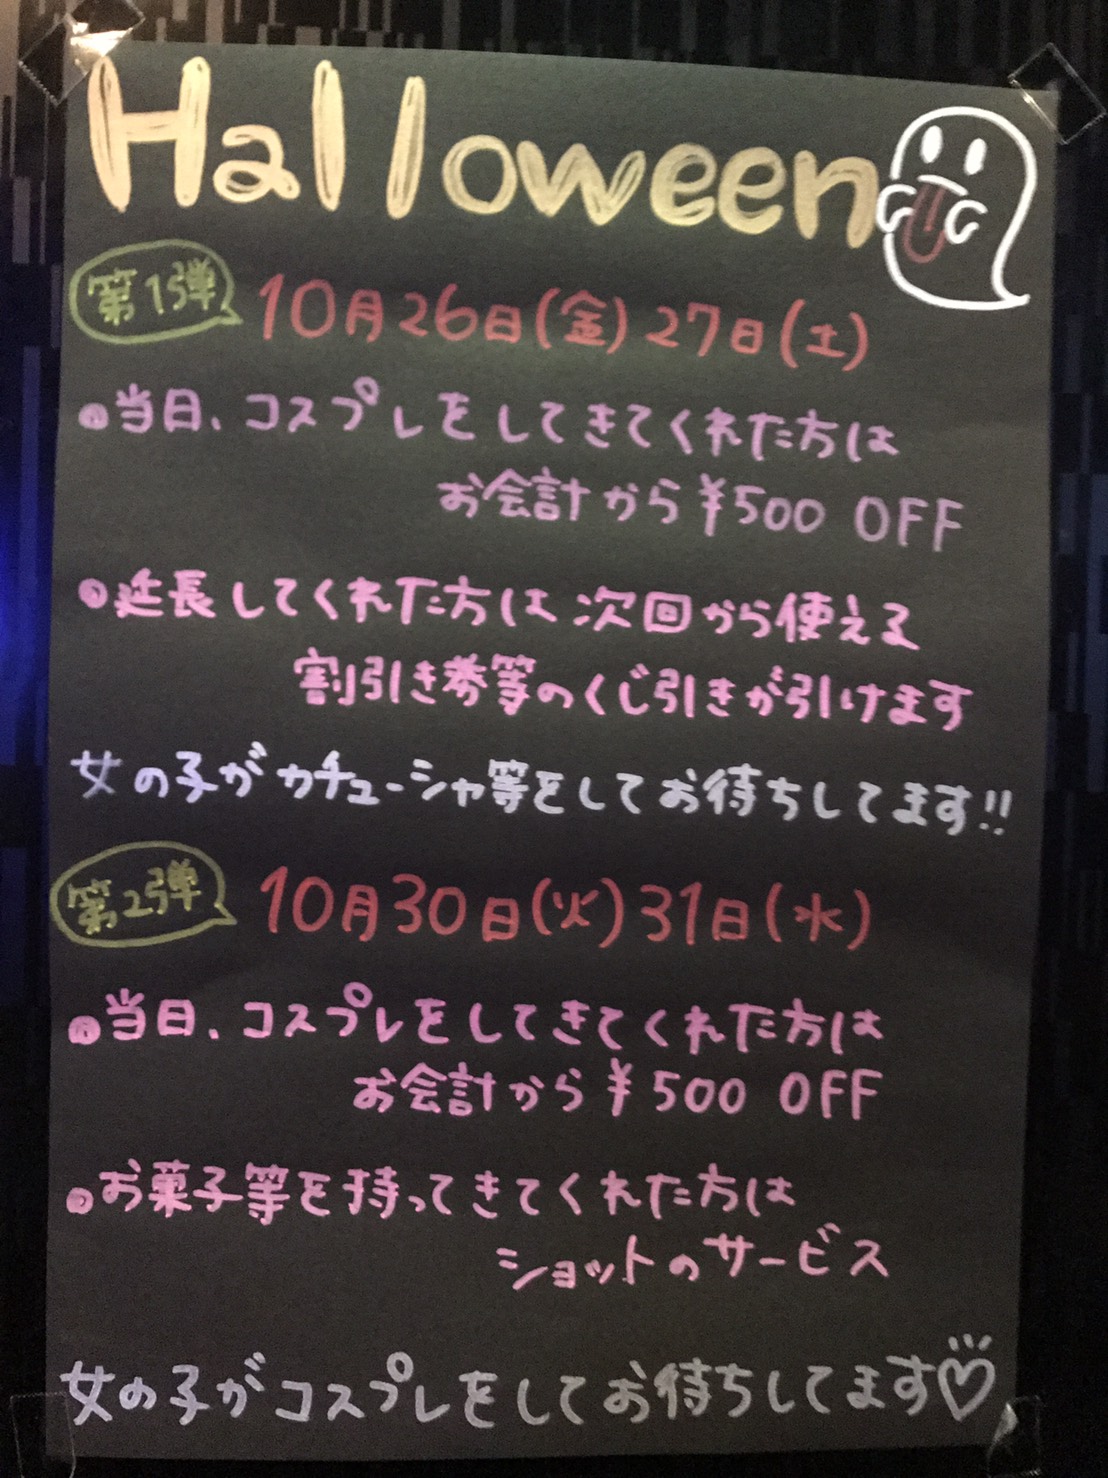 Halloween
第1弾 10月26日(金) 27日(土)
当日、コスプレをしてきてくれた方は
お会計から¥500 OFF
延長してくれた方は次回から使える
割引き券等のくじ引きが引けます
女の子がカチューシャ等をしてお待ちしてます!!
第2弾 10月30日(火) 31日(水)
当日、コスプレをしてきてくれた方は
お会計から¥500 OFF
お菓子等を持ってきてくれた方は
ショットのサービス
女の子がコスプレをしてお待ちしてます♡